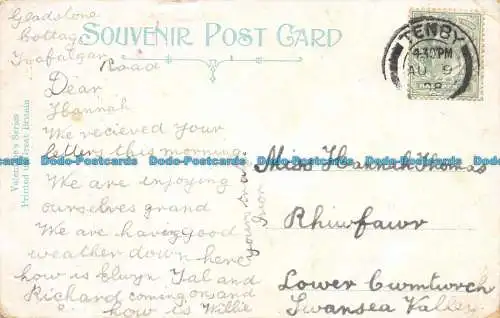 Gladstone
Cottage
Trafalgar
Road
SOUVENIR POST CARD
TENBY
4.30PM
AU 9
08
Valentine's Series
Printed in Great Britain
Dear
Hannah
We recieved your
letters this morning
We are enjoying
ourselves grand
We are having good
weather down here
how is Elwyn Tal and
Richard coming on and
how is Willie
yours truly
Miss Hannah Thomas
Rhiwfawr
Lower Cwmtwrch
Swansea Valley
Dodo-Postcards Dodo-Postcards Dodo-Postcards Dodo-Postcards